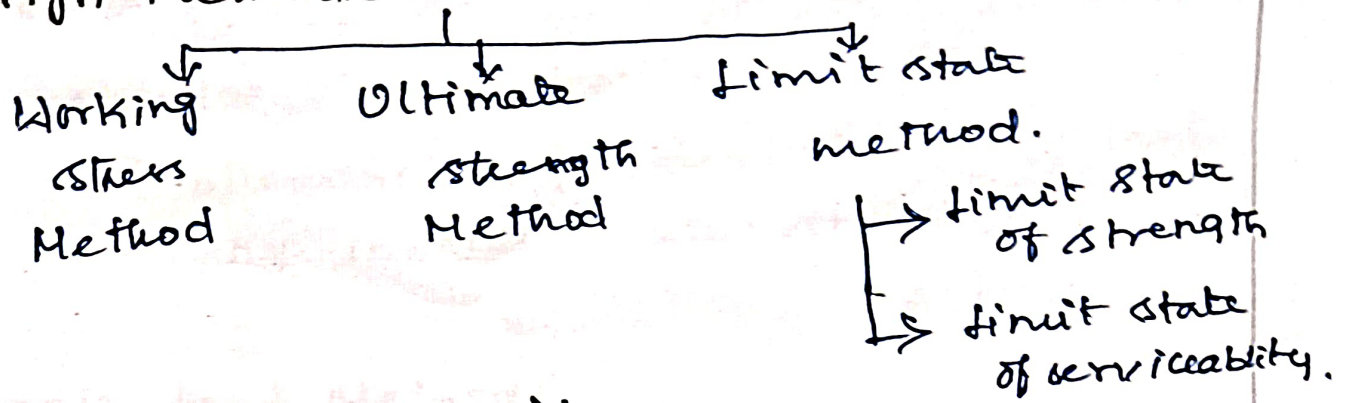 Working
Stress
Method
Ultimate
Strength
Method
Limit state
method.
Limit State
of strength
Limit state
of serviceablity.